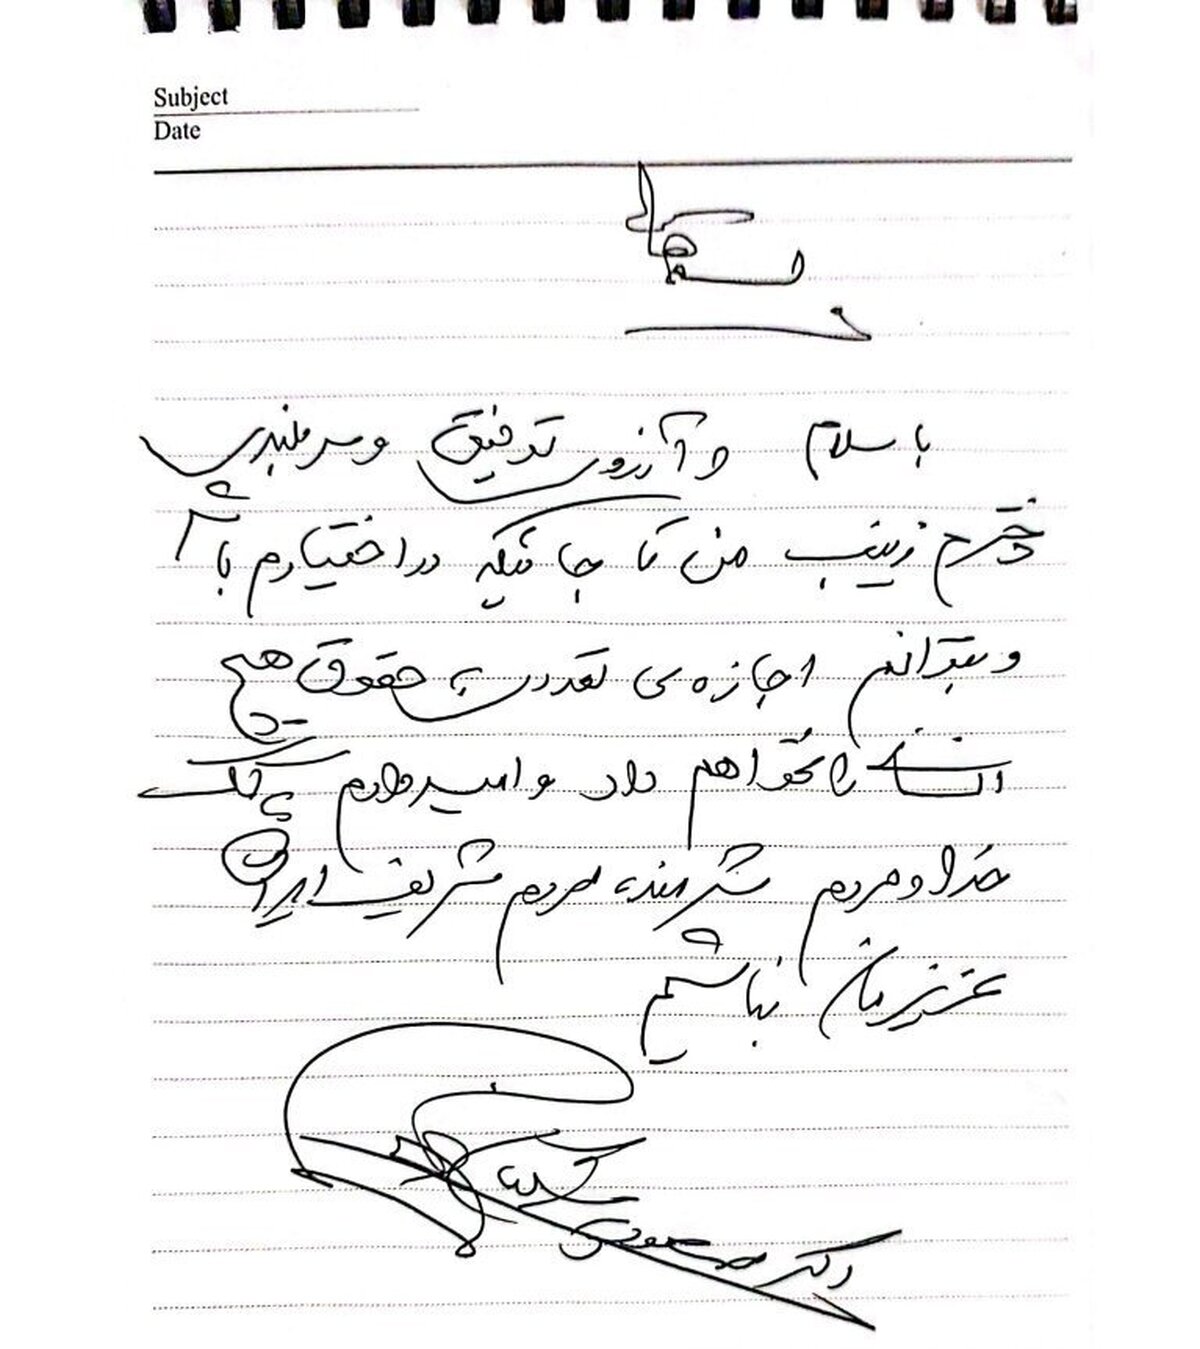 Subject
Date
باسلام و آرزوی توفیق و سربلندی
دخترم زینب من تا جائیکه در اختیارم باشد
و بتوانم اجازه‌ی تعدی به حقوق هیچ
انسانی را نخواهم داد و امیدوارم که
خدا و مردم شرمنده مردم شریف ایران
عزیزمان نباشیم
دکتر مسعود پزشکیان